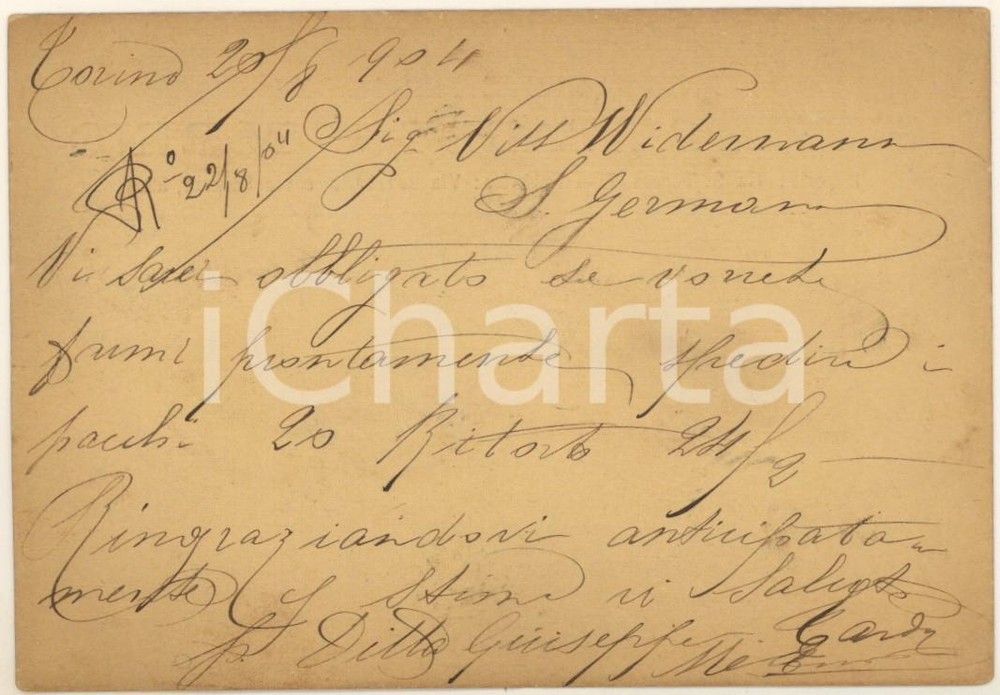 Torino 20/8 904
Sig Vitt Widemann
Rº 22/8/04
S. Germano
Vi sarei obbligato se vorrete
farmi prontamente spedire i
pacchi 20 Ritorto 24/2
Ringraziandovi anticipata=
mente stima vi saluto
p. Ditta Giuseppe
iCharta